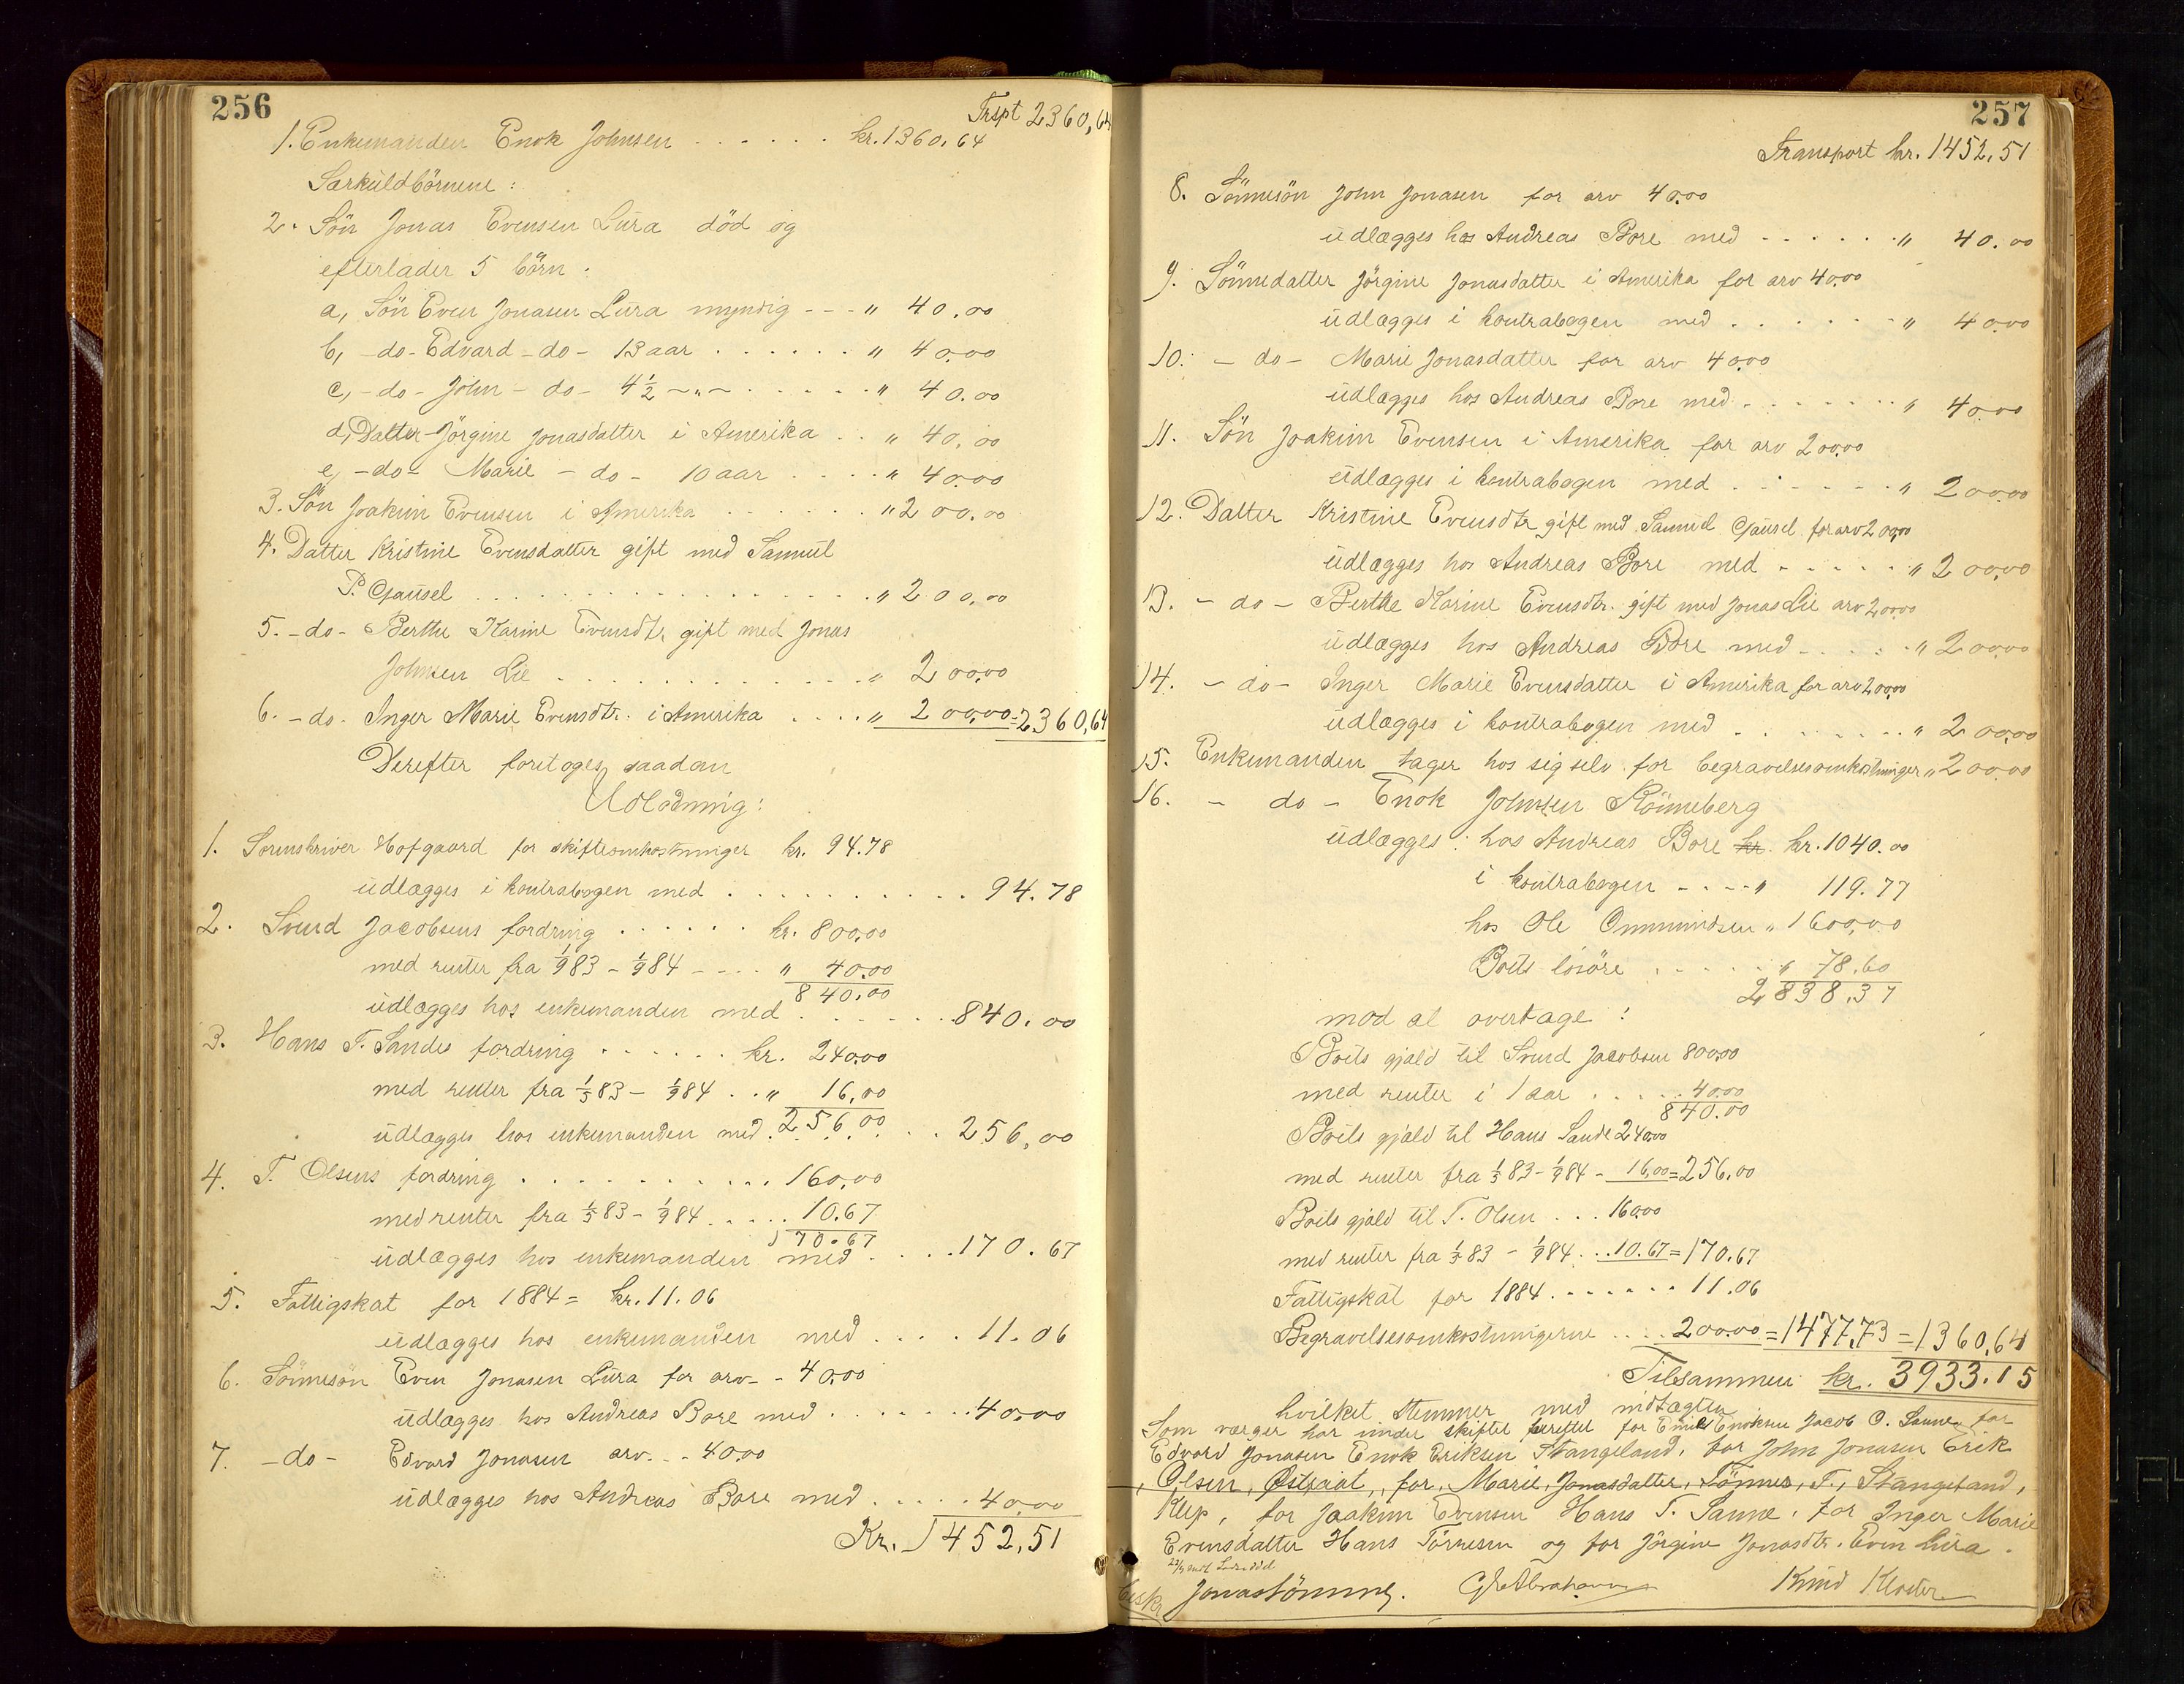 256
Trspt 2360,64
1. Enkemanden Enok Johnsen . . . . . . kr. 1360.64
Særkuldbörnene :
2. Sön Jonas Evensen Lura död og
efterlader 5 börn .
a, Sön Even Jonasen Lura myndig - - - " 40.00
b, -do- Edvard -do- 13 aar . . . . . . " 40.00
c, -do- John -do- 4½ -"- . . . . . " 40.00
d, Datter Jörgine Jonasdatter i Amerika . . " 40.00
e, -do- Marie -do- 10 aar . . . . " 40.00
3. Sön Joakim Evensen i Amerika . . . . . . " 200.00
4. Datter Kristine Evensdatter gift med Samuel
P. Gausel . . . . . . . . . . . . " 200.00
5. -do- Berthe Karine Evensdtr gift med Jonas
Johnsen Lie . . . . . . . . . . . " 200.00
6. -do- Inger Marie Evensdtr. i Amerika . . . . " 200.00 = 2360,64
Derefter foretoges saadan
Udlodning :
1. Sorenskriver Hofgaard for skifteomkostninger kr. 94.78
udlægges i kontrabogen med . . . . . . . . . 94.78
2. Svend Jacobsens fordring . . . . . . kr. 800.00
med renter fra 1/9 83 - 1/9 84 - - - . " 40.00
840.00
udlægges hos enkemanden med . . . . . . 840.00
3. Hans T. Sandes fordring . . . . . . kr. 240.00
med renter fra 1/5 83 - 1/9 84 . . " 16.00
256.00
udlægges hos enkemanden med . . . . . . 256.00
4. T. Olsens fordring . . . . . . . . . . 160.00
med renter fra 1/5 83 - 1/9 84 . . . . . 10.67
170.67
udlægges hos enkemanden med . . . . 170.67
5. Fattigskat for 1884 = kr. 11.06
udlægges hos enkemanden med . . . . 11.06
6. Sönnesön Even Jonasen Lura for arv - - 40.00
udlægges hos Andreas Bore med . . . . . . . 40.00
7. -do- Edvard Jonasen arv . - - 40.00
udlægges hos Andreas Bore med . . . . . 40.00
Kr. 1452,51
257
Transport kr. 1452,51
8. Sönnesön John Jonasen for arv 40.00
udlægges hos Andreas Bore med - - . . . . " 40.00
9. Sönnedatter Jörgine Jonasdatter i Amerika for arv 40.00
udlægges i kontrabogen med . . . . . - " 40.00
10. - do - Marie Jonasdatter for arv 40.00
udlægges hos Andreas Bore med . . . . . . . " 40.00
11. Sön Joakim Evensen i Amerika for arv 200.00
udlægges i kontrabogen med . . . . . . " 200.00
12. Datter Kristine Evensdtr gift med Samuel Gausel for arv 200.00
udlægges hos Andreas Bore med - . . . . " 200.00
13. - do - Berthe Karine Evensdtr. gift med Jonas Lie arv 200.00
udlægges hos Andreas Bore med - . . . . " 200.00
14. - do - Inger Marie Evensdatter i Amerika for arv 200.00
udlægges i kontrabogen med . . . . . . . . " 200.00
15. Enkemanden tager hos sig selv for begravelsesomkostninger " 200.00
16. - do - Enok Johnsen
udlægges : hos Andreas Bore kr. kr. 1040.00
i kontrabogen - . . - " 119.77
hos Ole Ommundsen " 1600,00
Boets lösöre . . . . . " 78.60
2838.37
mod at overtage :
Boets gjæld til Svend Jacobsen 800.00
med renter i 1 aar . . . . . 40.00
840.00
Boets gjæld til Hans Sande 240.00
med renter fra 1/5 83 - 1/9 84 - 16.00 = 256.00
Boets gjæld til T. Olsen . . . 160.00
med renter fra 1/5 83 - 1/9 84 . . . 10.67 = 170.67
Fattigskat for 1884 . . . . . . . 11.06
Begravelsesomkostningerne . . . . 200.00 = 1477,73 = 1360,64
Tilsammen kr. 3933.15
hvilket stemmer med indtægten
Som værger har under skiftet for Emil Enoksen Jacob O. Sanne, for
Edvard Jonasen Enok Eriksen Stangeland, for John Jonasen Erik
Olsen, for Marie Jonasdatter, Tönnes T. Stangeland,
Klep, for Joakim Evensen Hans T. Sanne, for Inger Marie
Evensdatter Hans Törresen og for Jörgine Jonasdtr. Even Lura .
Jonas Knud Kloster